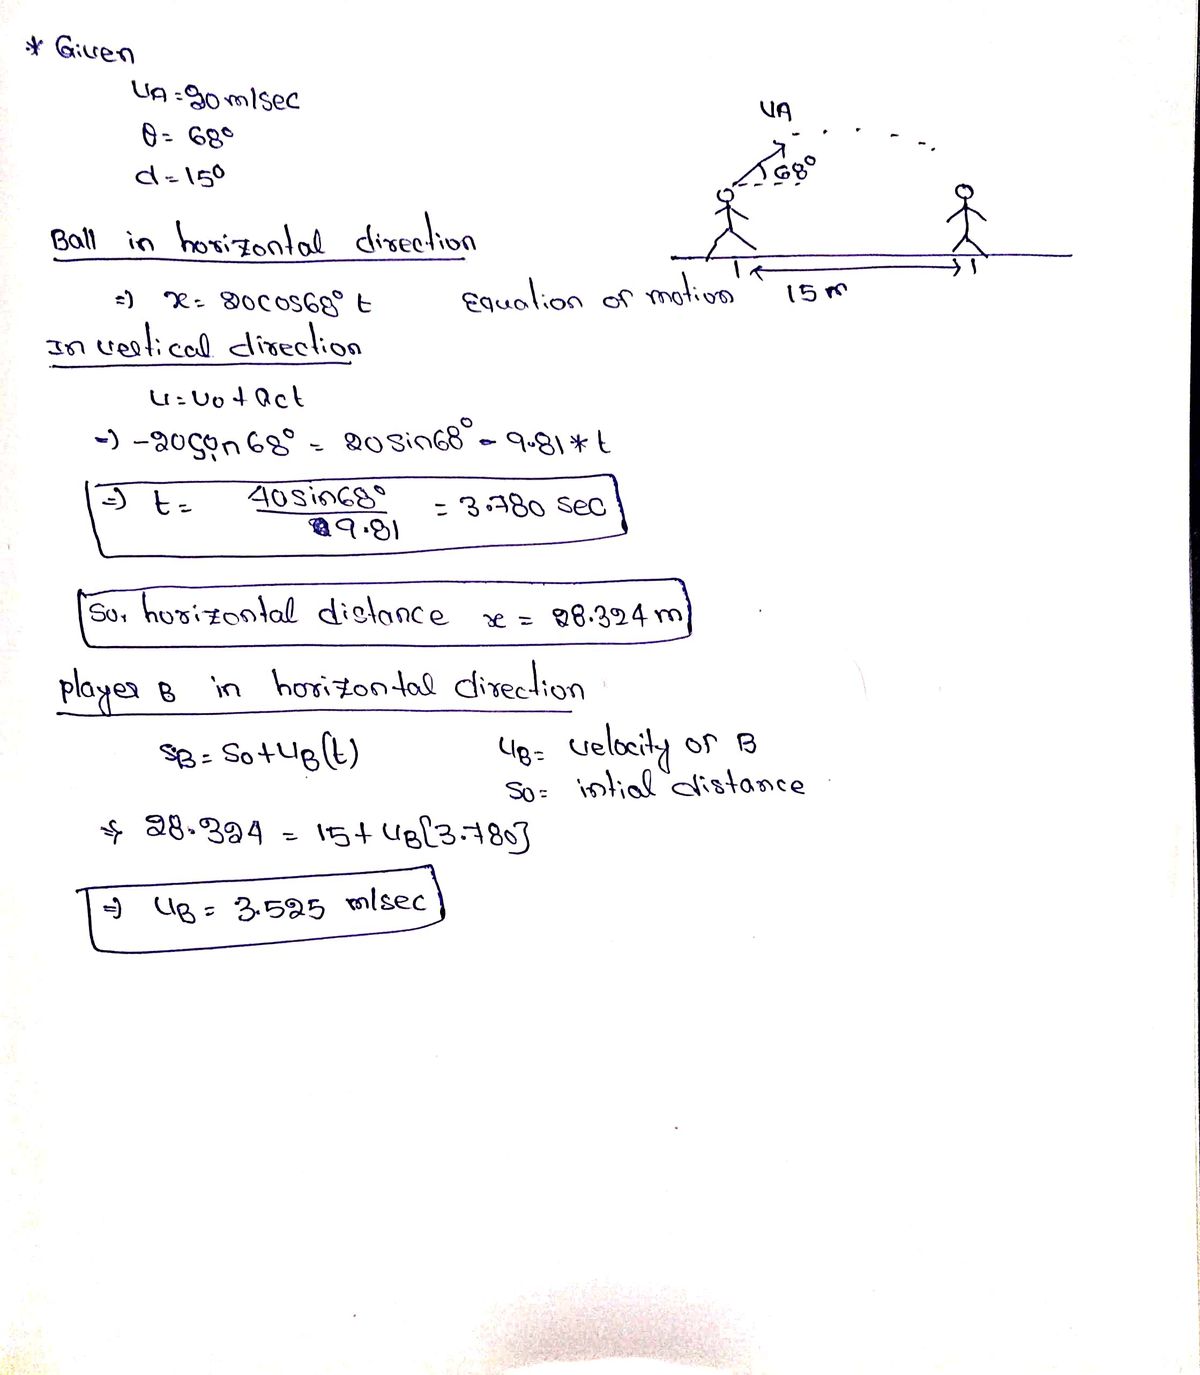 * Given
UA = 20 m/sec
θ = 68°
d = 150
UA
68°
Ball in horizontal direction
⇒ x = 20cos68° t Equation of motion 15 m
In vertical direction
u = uo + act
⇒ -20sin68° = 20sin68° - 9.81 * t
⇒ t = 40sin68° / 9.81 = 3.780 sec
So, horizontal distance x = 28.324 m
player B in horizontal direction
SB = So + UB(t) UB = velocity of B
So = intial distance
⇒ 28.324 = 15 + UB[3.780]
⇒ UB = 3.525 m/sec